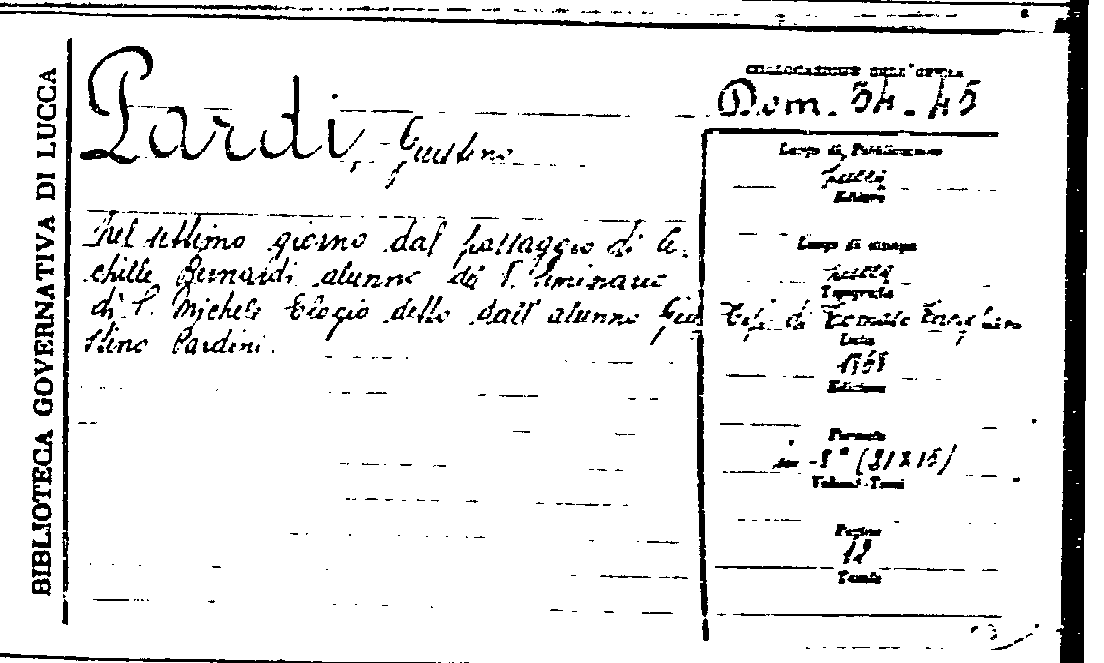 BIBLIOTECA GOVERNATIVA DI LUCCA
Pardi, Giustino
Nel settimo giorno dal passaggio di A-
chille Bernardi alunno del S. Seminario
di S. Michele Elogio detto dall' alunno Giu
stino Pardini.
COLLOCAZIONE DELL'OPERA
Dom. 54.45
Luogo di Pubblicazione
Lucca
Editore
Luogo di stampa
Lucca
Tipografia
Tip. di
Data
Edizione
Formato
in -8° (21X15)
Volumi-Tomi
Pagine
12
Tavole